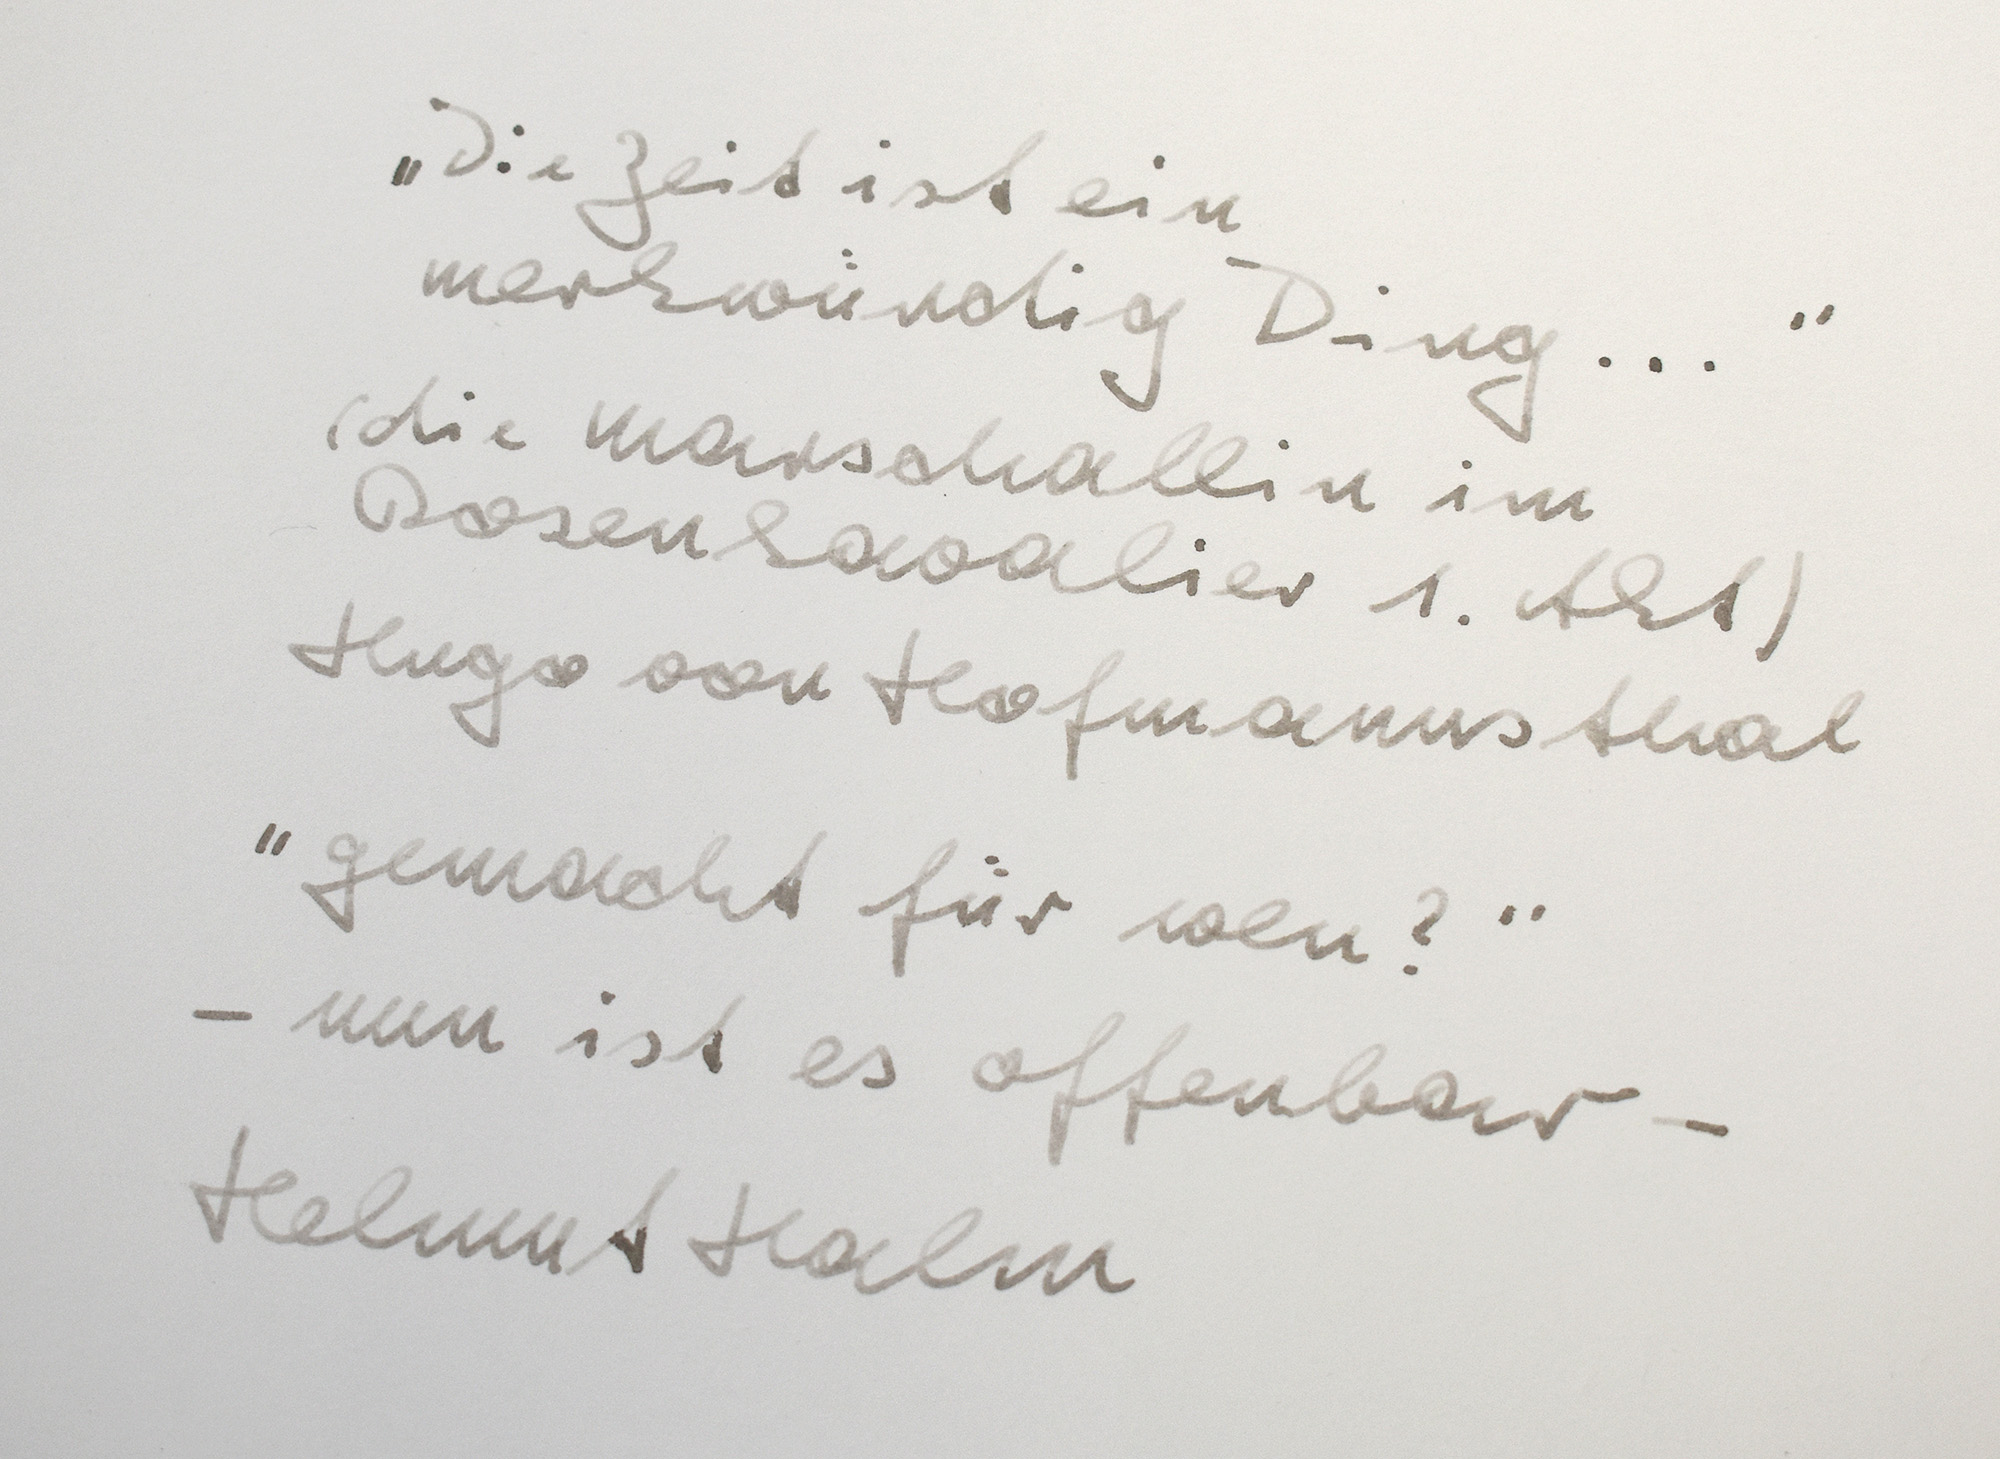 „Die Zeit ist ein
merkwürdig Ding... "
(die Marschallin im
Rosenkavalier 1. Akt)
Hugo von Hofmannsthal
"gemacht für wen?"
- nun ist es offenbar -
Helmut Halm